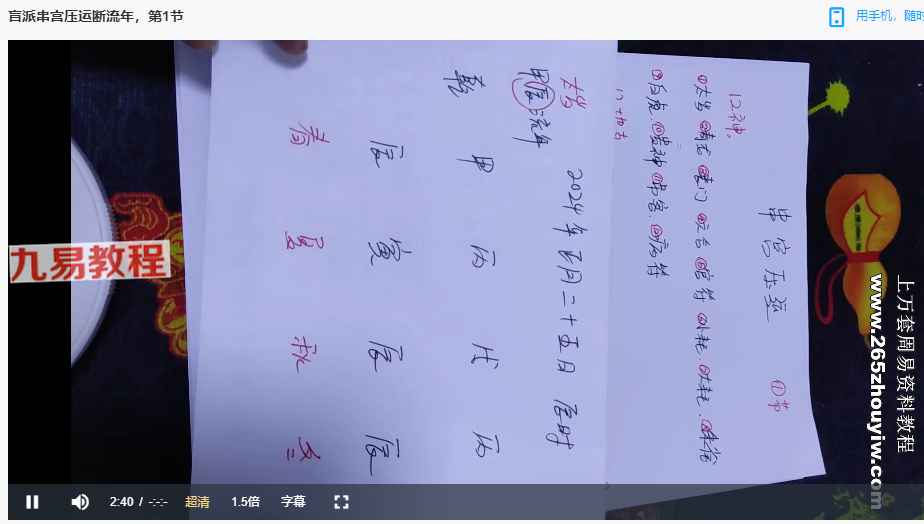 盲派串宫压运断流年，第1节
用手机，随时
串宫压运
①节
12神
①太岁 ②青龙 ③丧门 ④六合 ⑤官符 ⑥小耗 ⑦大耗 ⑧朱雀
⑨白虎 ⑩贵神 ⑪吊客 ⑫病符
2024年正月二十五日 辰时
太岁
甲辰流年
乾 甲 丙 戊 丙
辰 寅 辰 辰
春 夏 秋 冬
九易教程
上万套周易资料教程
www.265zhouyiw.com
2:40 / -:-:- 超清 1.5倍 字幕